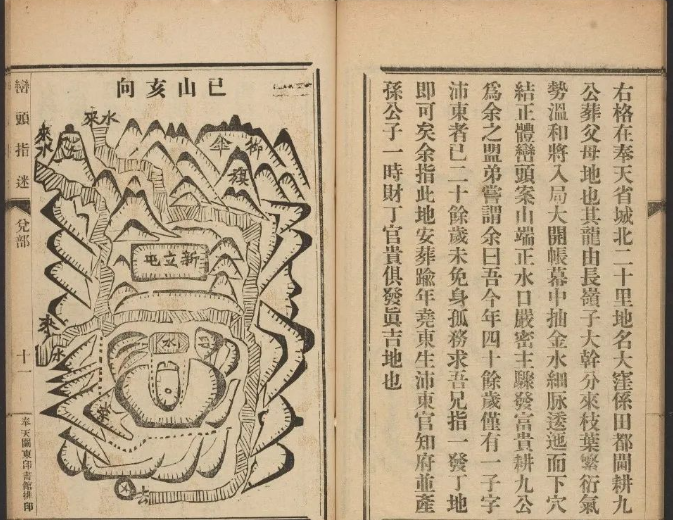 右格在奉天省城北二十里地名大窪係田都閫耕九
公葬父母地也其龍由長嶺子大幹分來枝葉繁衍氣
勢溫和將入局大開帳幕中抽金水細脉透迤而下穴
結正體巒頭案山端正水口嚴密主驟發富貴耕九公
爲余之盟弟嘗謂余曰吾今年四十餘歲僅有一子字
沛東者已二十餘歲未免身孤務求吾兄指一發丁地
即可矣余指此地安葬踰年堯東生沛東官知府並產
孫公子一時財丁官貴俱發眞吉地也
巳山亥向
傘
旗
水來
來水
新立屯
來水
水
去
巒頭指迷
兌部
十一
奉天關東印書館排印